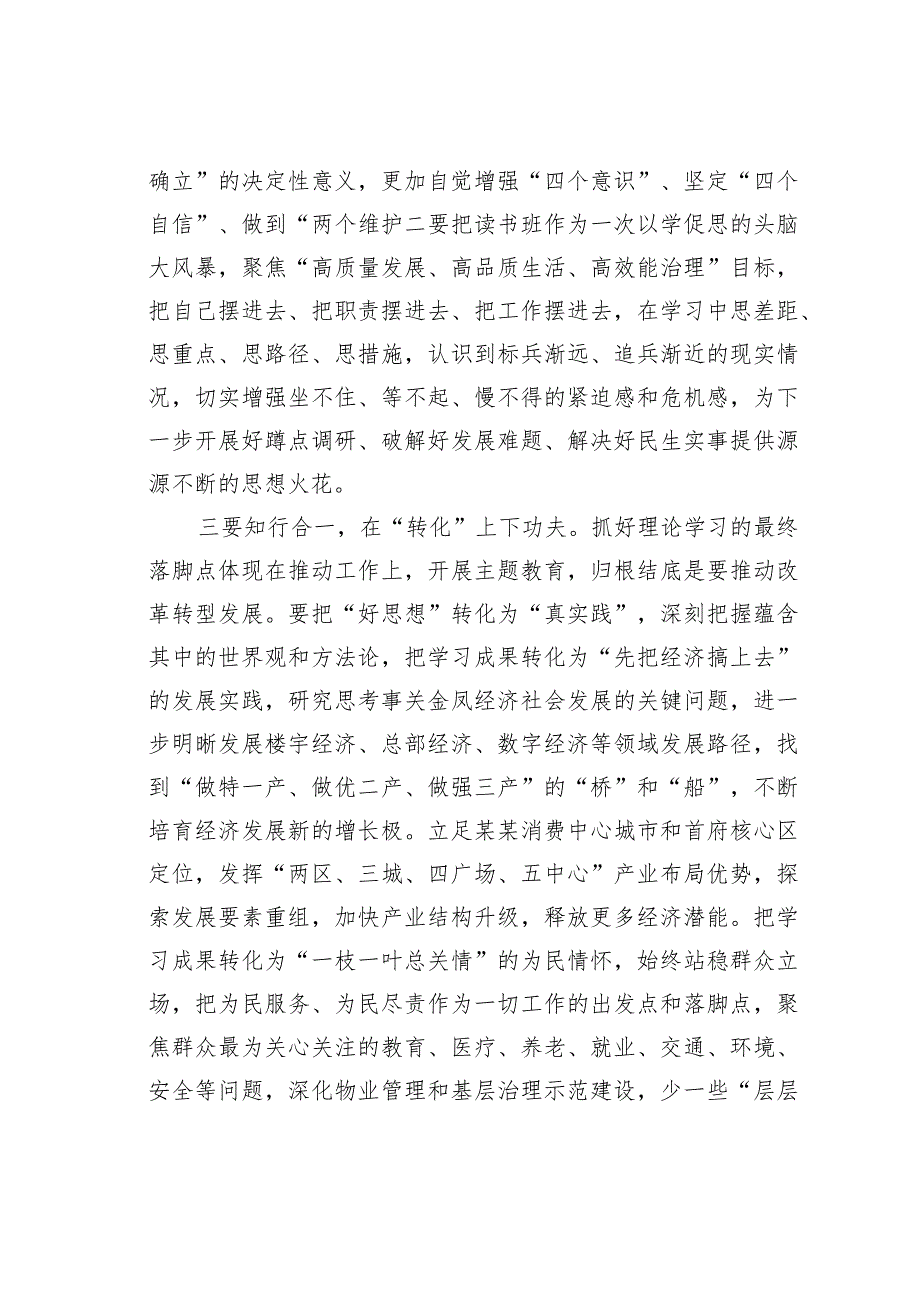 确立”的决定性意义，更加自觉增强“四个意识”、坚定“四个
自信”、做到“两个维护二要把读书班作为一次以学促思的头脑
大风暴，聚焦“高质量发展、高品质生活、高效能治理”目标，
把自己摆进去、把职责摆进去、把工作摆进去，在学习中思差距、
思重点、思路径、思措施，认识到标兵渐远、追兵渐近的现实情
况，切实增强坐不住、等不起、慢不得的紧迫感和危机感，为下
一步开展好蹲点调研、破解好发展难题、解决好民生实事提供源
源不断的思想火花。
三要知行合一，在“转化”上下功夫。抓好理论学习的最终
落脚点体现在推动工作上，开展主题教育，归根结底是要推动改
革转型发展。要把“好思想”转化为“真实践”，深刻把握蕴含
其中的世界观和方法论，把学习成果转化为“先把经济搞上去”
的发展实践，研究思考事关金凤经济社会发展的关键问题，进一
步明晰发展楼宇经济、总部经济、数字经济等领域发展路径，找
到“做特一产、做优二产、做强三产”的“桥”和“船”，不断
培育经济发展新的增长极。立足某某消费中心城市和首府核心区
定位，发挥“两区、三城、四广场、五中心”产业布局优势，探
索发展要素重组，加快产业结构升级，释放更多经济潜能。把学
习成果转化为“一枝一叶总关情”的为民情怀，始终站稳群众立
场，把为民服务、为民尽责作为一切工作的出发点和落脚点，聚
焦群众最为关心关注的教育、医疗、养老、就业、交通、环境、
安全等问题，深化物业管理和基层治理示范建设，少一些“层层